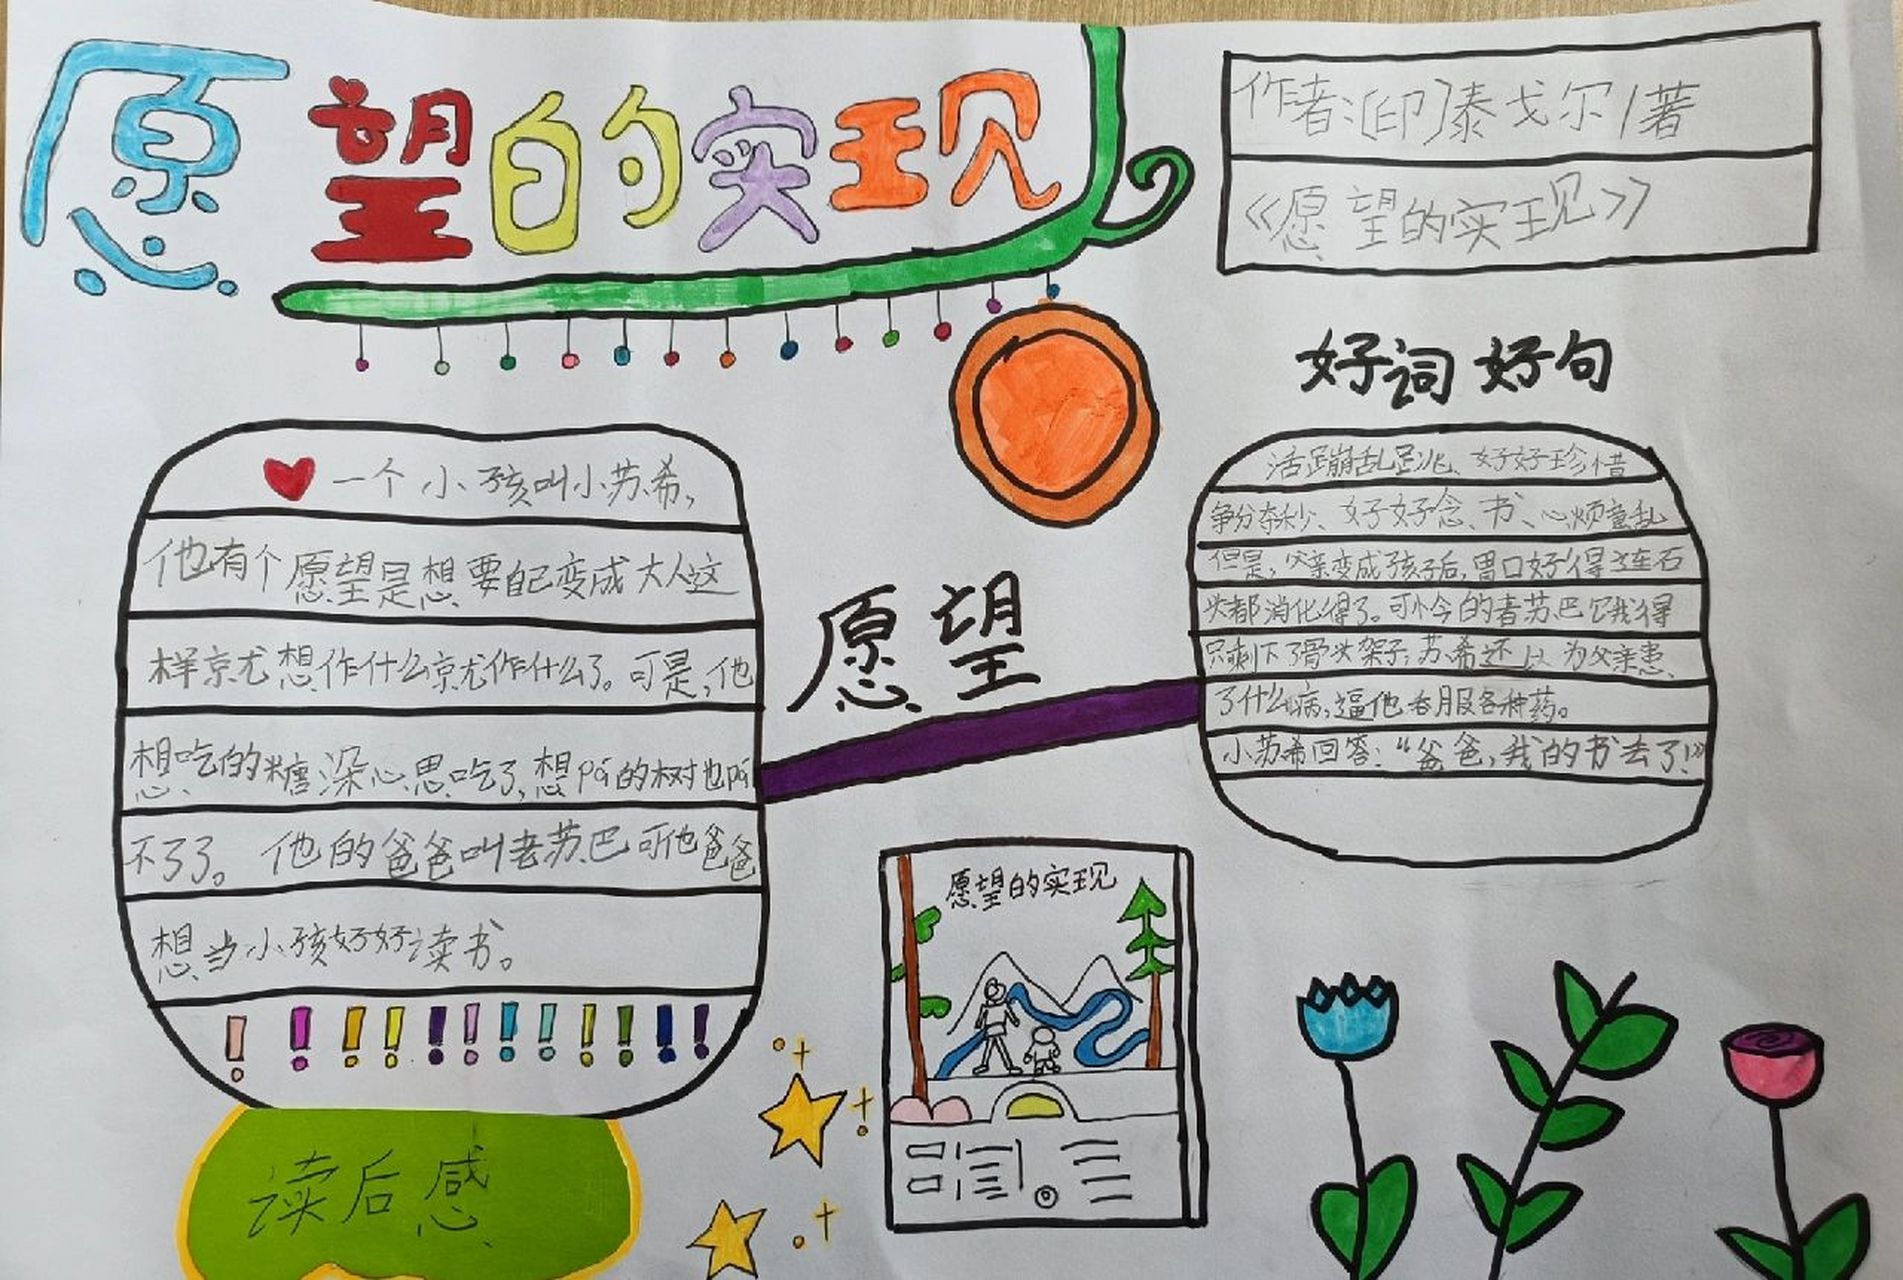 愿望的实现
作者:[印]泰戈尔/著
《愿望的实现》
好词好句
一个小孩叫小苏希,
他有个愿望是想要自己变成大人这
样就想作什么就作什么了。可是,他
想吃的糖深心思吃了,想pá的树也pá
不了了。他的爸爸叫老苏巴可他爸爸
想当小孩好好读书。
愿望
活蹦乱跳、好好珍惜
争分夺秒、好好念、书、心烦意乱
但是,父亲变成孩子后,胃口好得连石
头都消化得了。可怜的老苏巴饿得
只剩下了骨头架子,苏希还以为父亲患
了什么病,逼他吞服各种药。
小苏希回答:“爸爸,我的书去了!”
愿望的实现
读后感